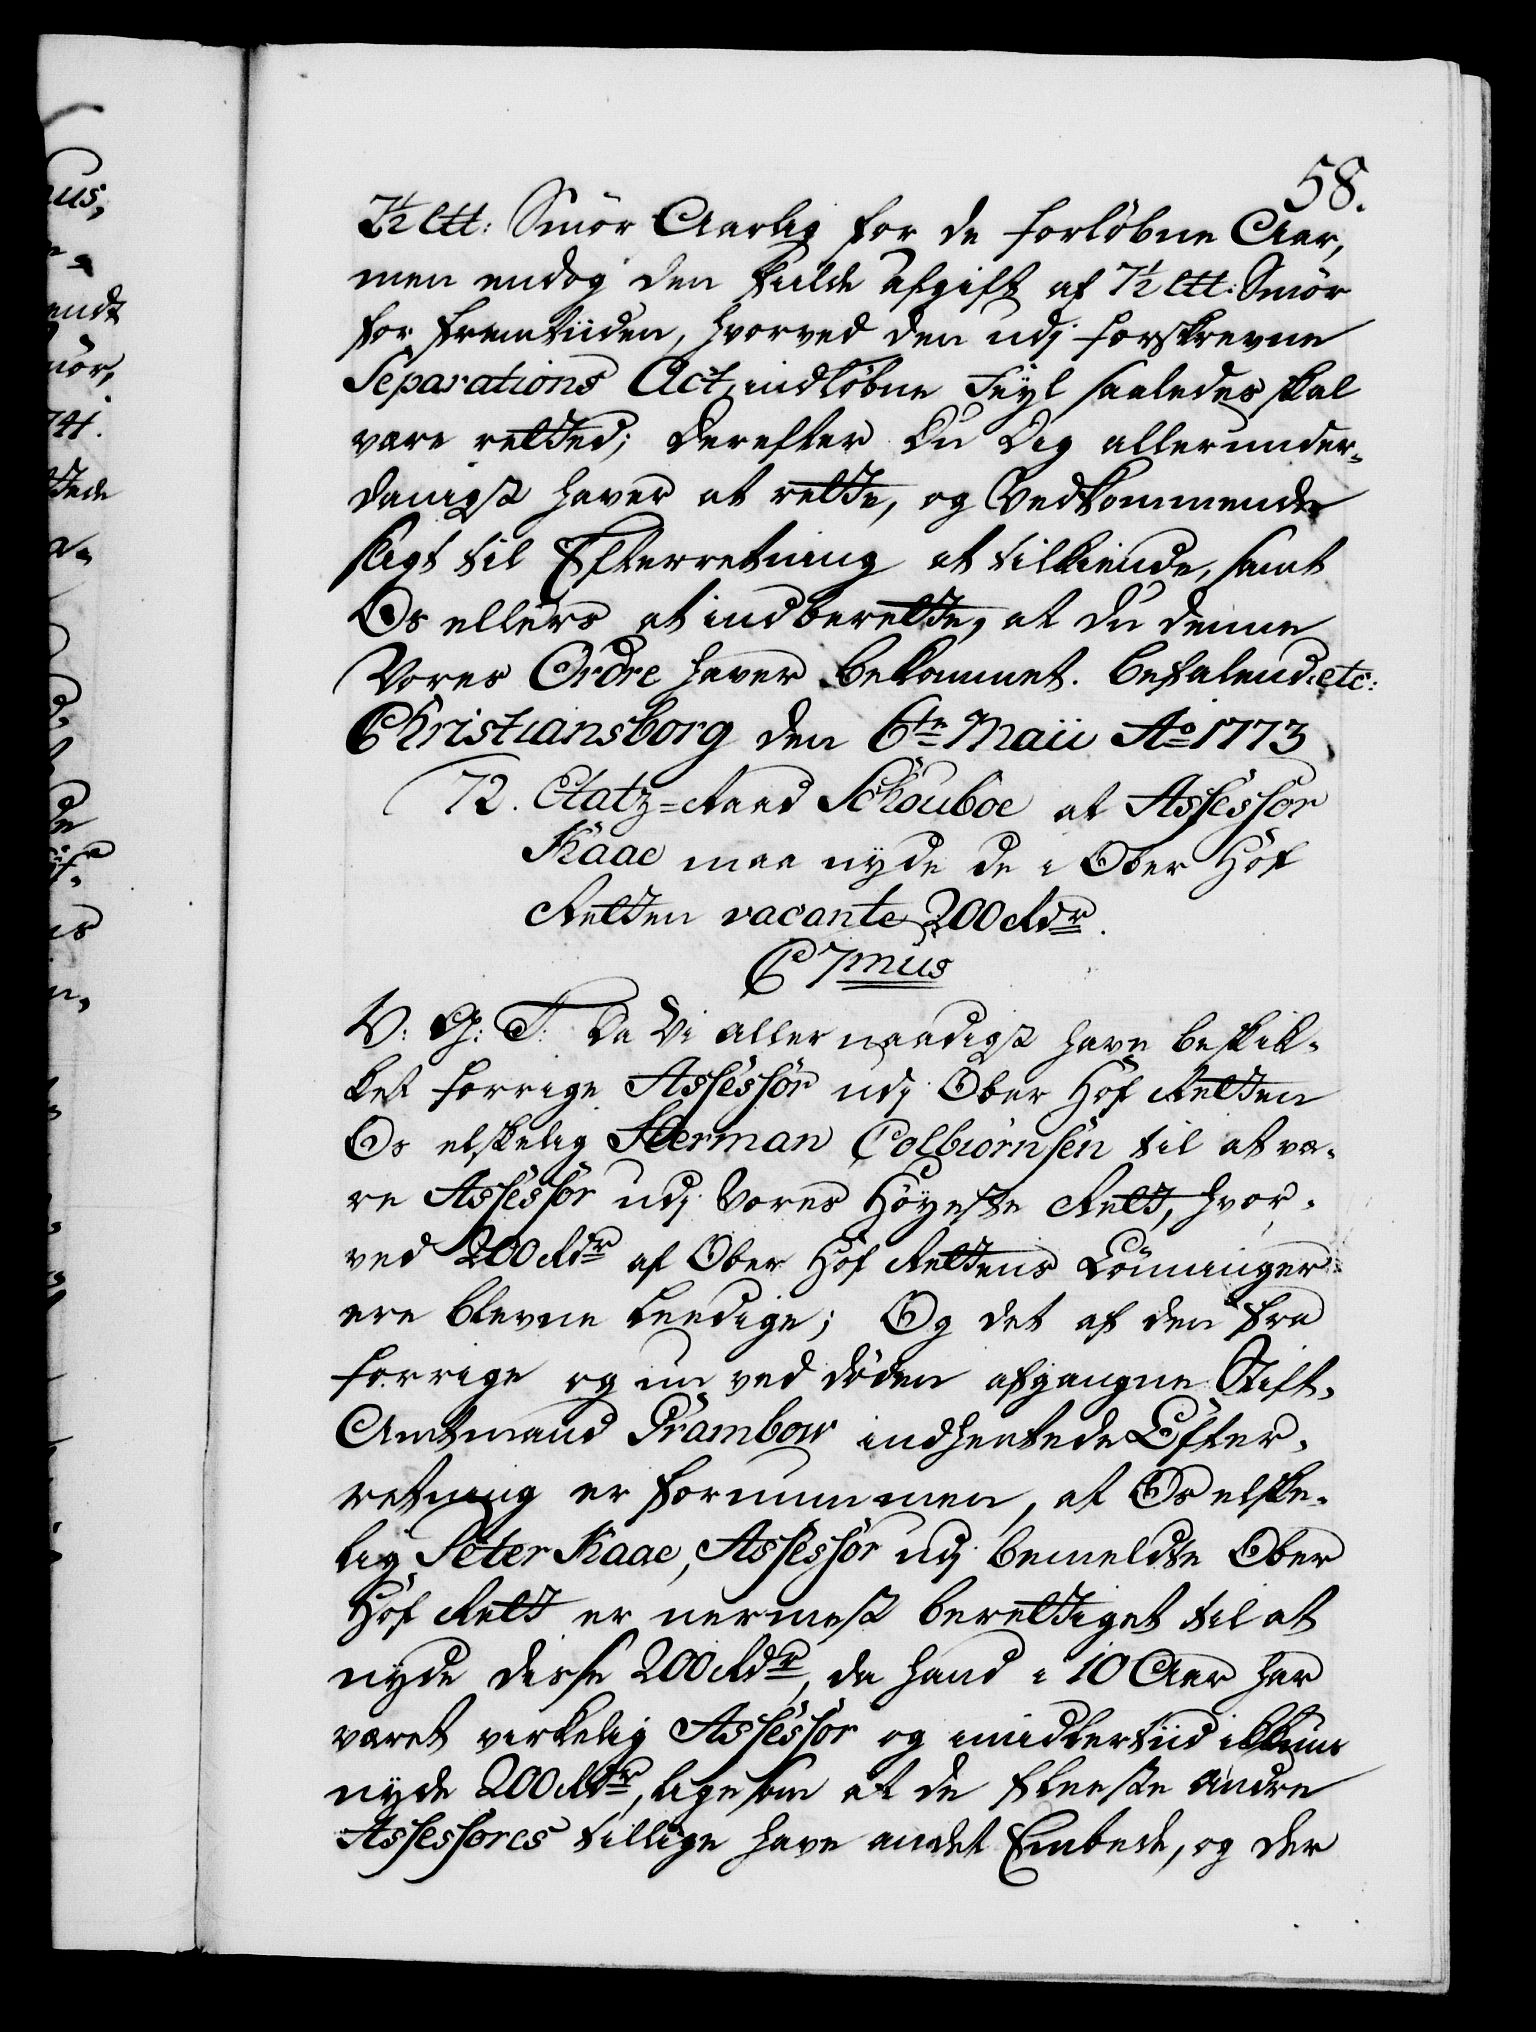 58.
7½ ℔: Smör Aarlig for de forlöbne Aar,
men endog den fulde Afgift af 7½ ℔: Smör
for fremtiiden, hvorved den udj forskrevne
Separations Act indlöbne Feyl saaledes skal
være rettet; Derefter Du Dig allerunder-
danigst haver at rette, og Vedkommende
sligt til Efterretning at tilkiende, samt
Os ellers at indberette, at du denne
Vores Ordre haver bekommet. Befalend: etc:
Christiansborg den 6te Maii Ao 1773
72. Etatz-Raad Schouboe at Assessor
Kaae maa nyde de i Ober Hof
Retten vacante 200 Rdr.
C 7mus
V: G: T: Da Vi allernaadigst have beskik-
ket forrige Assessor udj Ober Hof Retten
Os elskelig Herman Colbiørnsen til at væ-
re Assessor udj Vores Höyeste Rett, hvor-
ved 200 Rdr af Ober Hof Rettens Lönninger
ere blevne leedige; Og det af den fra
forrige og nu ved döden afgangne Stift-
Amtmand Prambow indhentede Efter-
retning er fornummen, at Os elske-
lig Peter Kaae, Assessor udj bemeldte Ober
Hof Rett er nermest berettiget til at
nyde disse 200 Rdr, da hand i 10 Aar har
været virkelig Assessor og imidlertiid ikkuns
nyde 200 Rdr, ligesom at de fleeste andre
Assessores tillige have andet Embede, og der
us,
endt
mör,
741.
ttede
a-